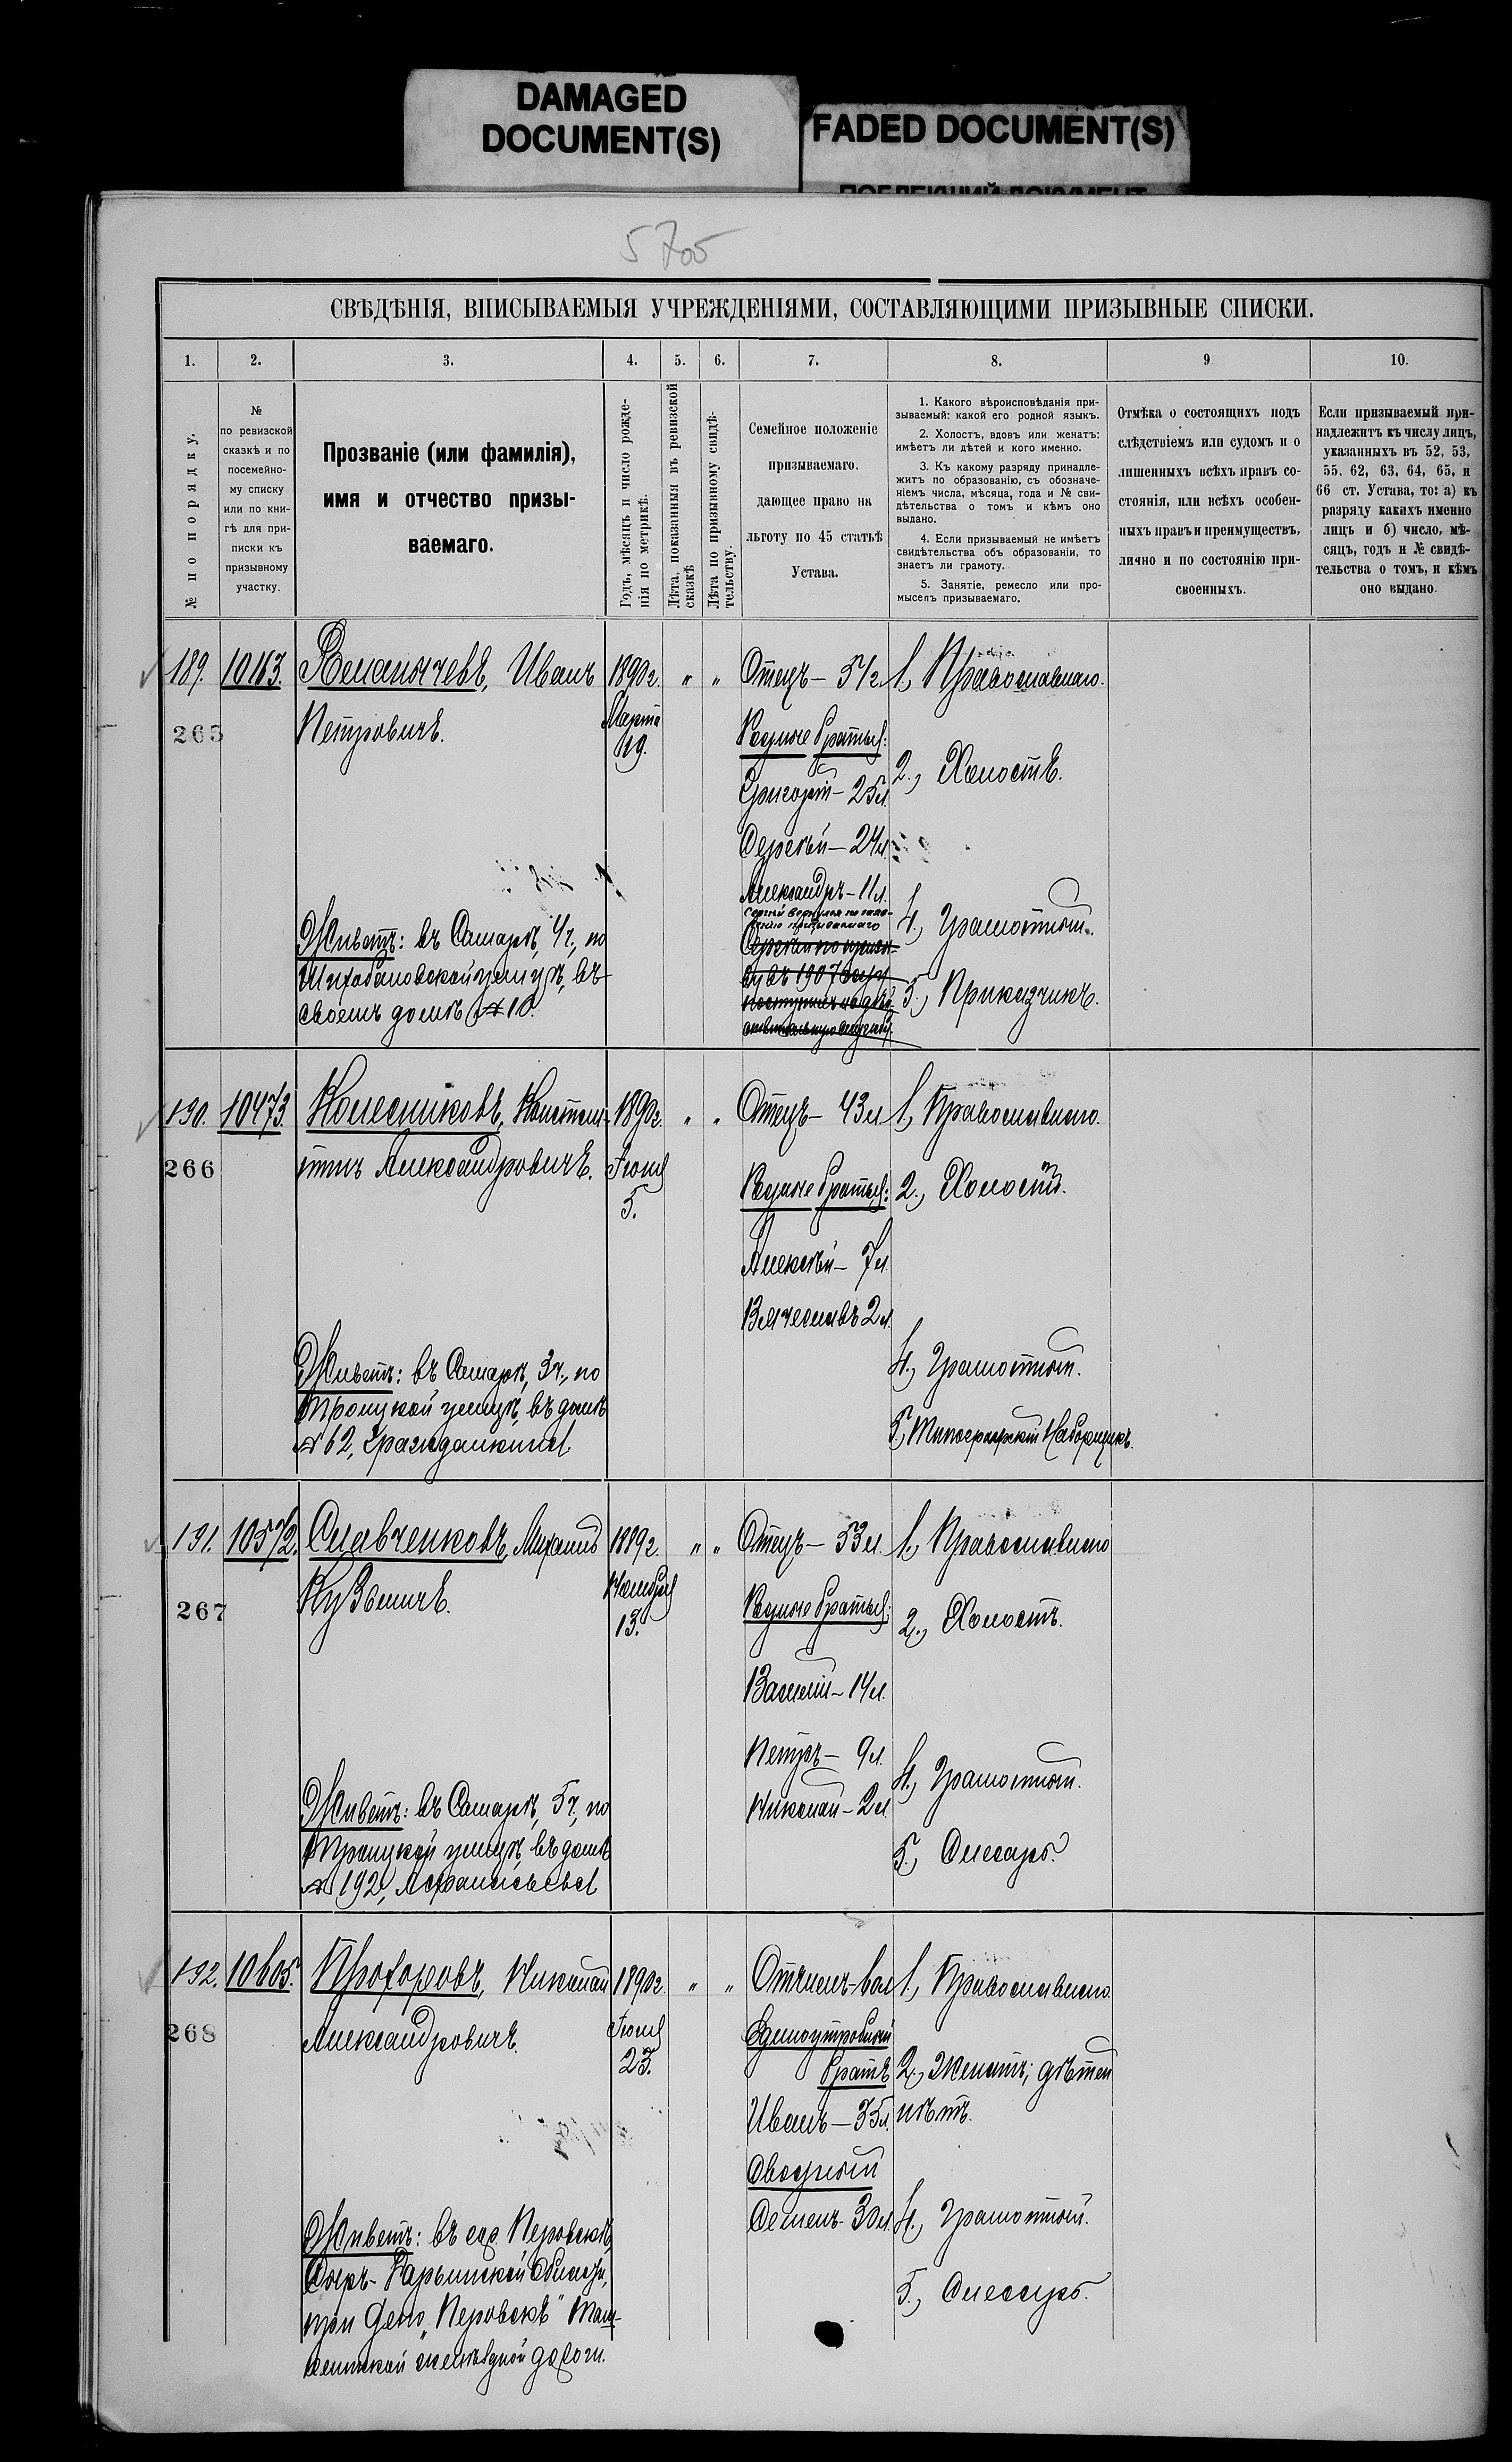 DAMAGED
DOCUMENT(S)
FADED DOCUMENT(S)
ПОБЛЕКШИЙ ДОКУМЕНТ
5705
СВѢДѢНІЯ, ВПИСЫВАЕМЫЯ УЧРЕЖДЕНІЯМИ, СОСТАВЛЯЮЩИМИ ПРИЗЫВНЫЕ СПИСКИ.
1.
2.
3.
4.
5.
6.
7.
8.
9
10.
№ по порядку.
№
по ревизской
сказкѣ и по
посемейно-
му списку
или по кни-
гѣ для при-
писки къ
призывному
участку.
Прозваніе (или фамилія),
имя и отчество призы-
ваемаго.
Годъ, мѣсяцъ и число рожде-
нія по метрикѣ.
Лѣта, показанныя въ ревизской
сказкѣ
Лѣта по призывному свидѣ-
тельству.
Семейное положеніе
призываемаго,
дающее право на
льготу по 45 статьѣ
Устава.
1. Какого вѣроисповѣданія при-
зываемый: какой его родной языкъ.
2. Холостъ, вдовъ или женатъ:
имѣетъ ли дѣтей и кого именно.
3. Къ какому разряду принадле-
житъ по образованію, съ обозначе-
ніемъ числа, мѣсяца, года и № сви-
дѣтельства о томъ и кѣмъ оно
выдано.
4. Если призываемый не имѣетъ
свидѣтельства объ образованіи, то
знаетъ ли грамоту.
5. Занятіе, ремесло или про-
мыселъ призываемаго.
Отмѣка о состоящихъ подъ
слѣдствіемъ или судомъ и о
лишенныхъ всѣхъ правъ со-
стоянія, или всѣхъ особен-
ныхъ правъ и преимуществъ,
лично и по состоянію при-
своенныхъ.
Если призываемый при-
надлежитъ къ числу лицъ,
указанныхъ въ 52, 53,
55, 62, 63, 64, 65, и
66 ст. Устава, то: а) къ
разряду какихъ именно
лицъ и б) число, мѣ-
сяцъ, годъ и № свидѣ-
тельства о томъ, и кѣмъ
оно выдано.
189. 10163.
265
Иванъ
Петровичъ.
Живетъ: въ Самарѣ, 4ч., по
улицѣ, въ
своемъ домѣ № 10.
1890г.
Марта
19.
" "
Отецъ — 51 г.
Родные братья:
Григорій — 25 л.
Сергѣй — 24 л.
Александръ — 11 л.
1, Православнаго.
2., Холостъ.
4., Грамотный.
5., Приказчикъ.
190. 10473.
266
Колесниковъ, Констан-
тинъ Александровичъ.
Живетъ: въ Самарѣ, 3ч., по
Троицкой улицѣ, въ домѣ
№ 62, Гражданкина
1890г.
Іюня
5.
" "
Отецъ — 43 л
Родные братья:
Алексѣй — 7 л.
Вячеславъ 2 л.
1, Православнаго.
2., Холостъ.
4., Грамотный.
5., Типографскій Наборщикъ.
191. 10572.
267
Славченковъ, Михаилъ
Кузьмичъ.
Живетъ: въ Самарѣ, 5ч., по
Троицкой улицѣ, въ домѣ
№ 192, Афанасьева
1889г.
Ноября
13.
" "
Отецъ — 53 л.
Родные братья:
Василій — 14 л.
Петръ — 9 л.
Николай — 2 л
1, Православнаго
2., Холостъ.
4., Грамотный.
5., Слесарь.
192. 10605.
268
Прохоровъ, Николай
Александровичъ.
Живетъ: въ гор. Перовскѣ,
Сыръ-Дарьинской Области,
при Депо "Перовскъ" Таш-
кентской желѣзной дороги.
1890г.
Іюня
23.
" "
Единоутробный
братъ
Иванъ — 35 л.
Сводный
Семенъ - 30 л.
1., Православнаго.
2., Женатъ; дѣтей
нѣтъ.
4., Грамотный.
5., Слесарь.